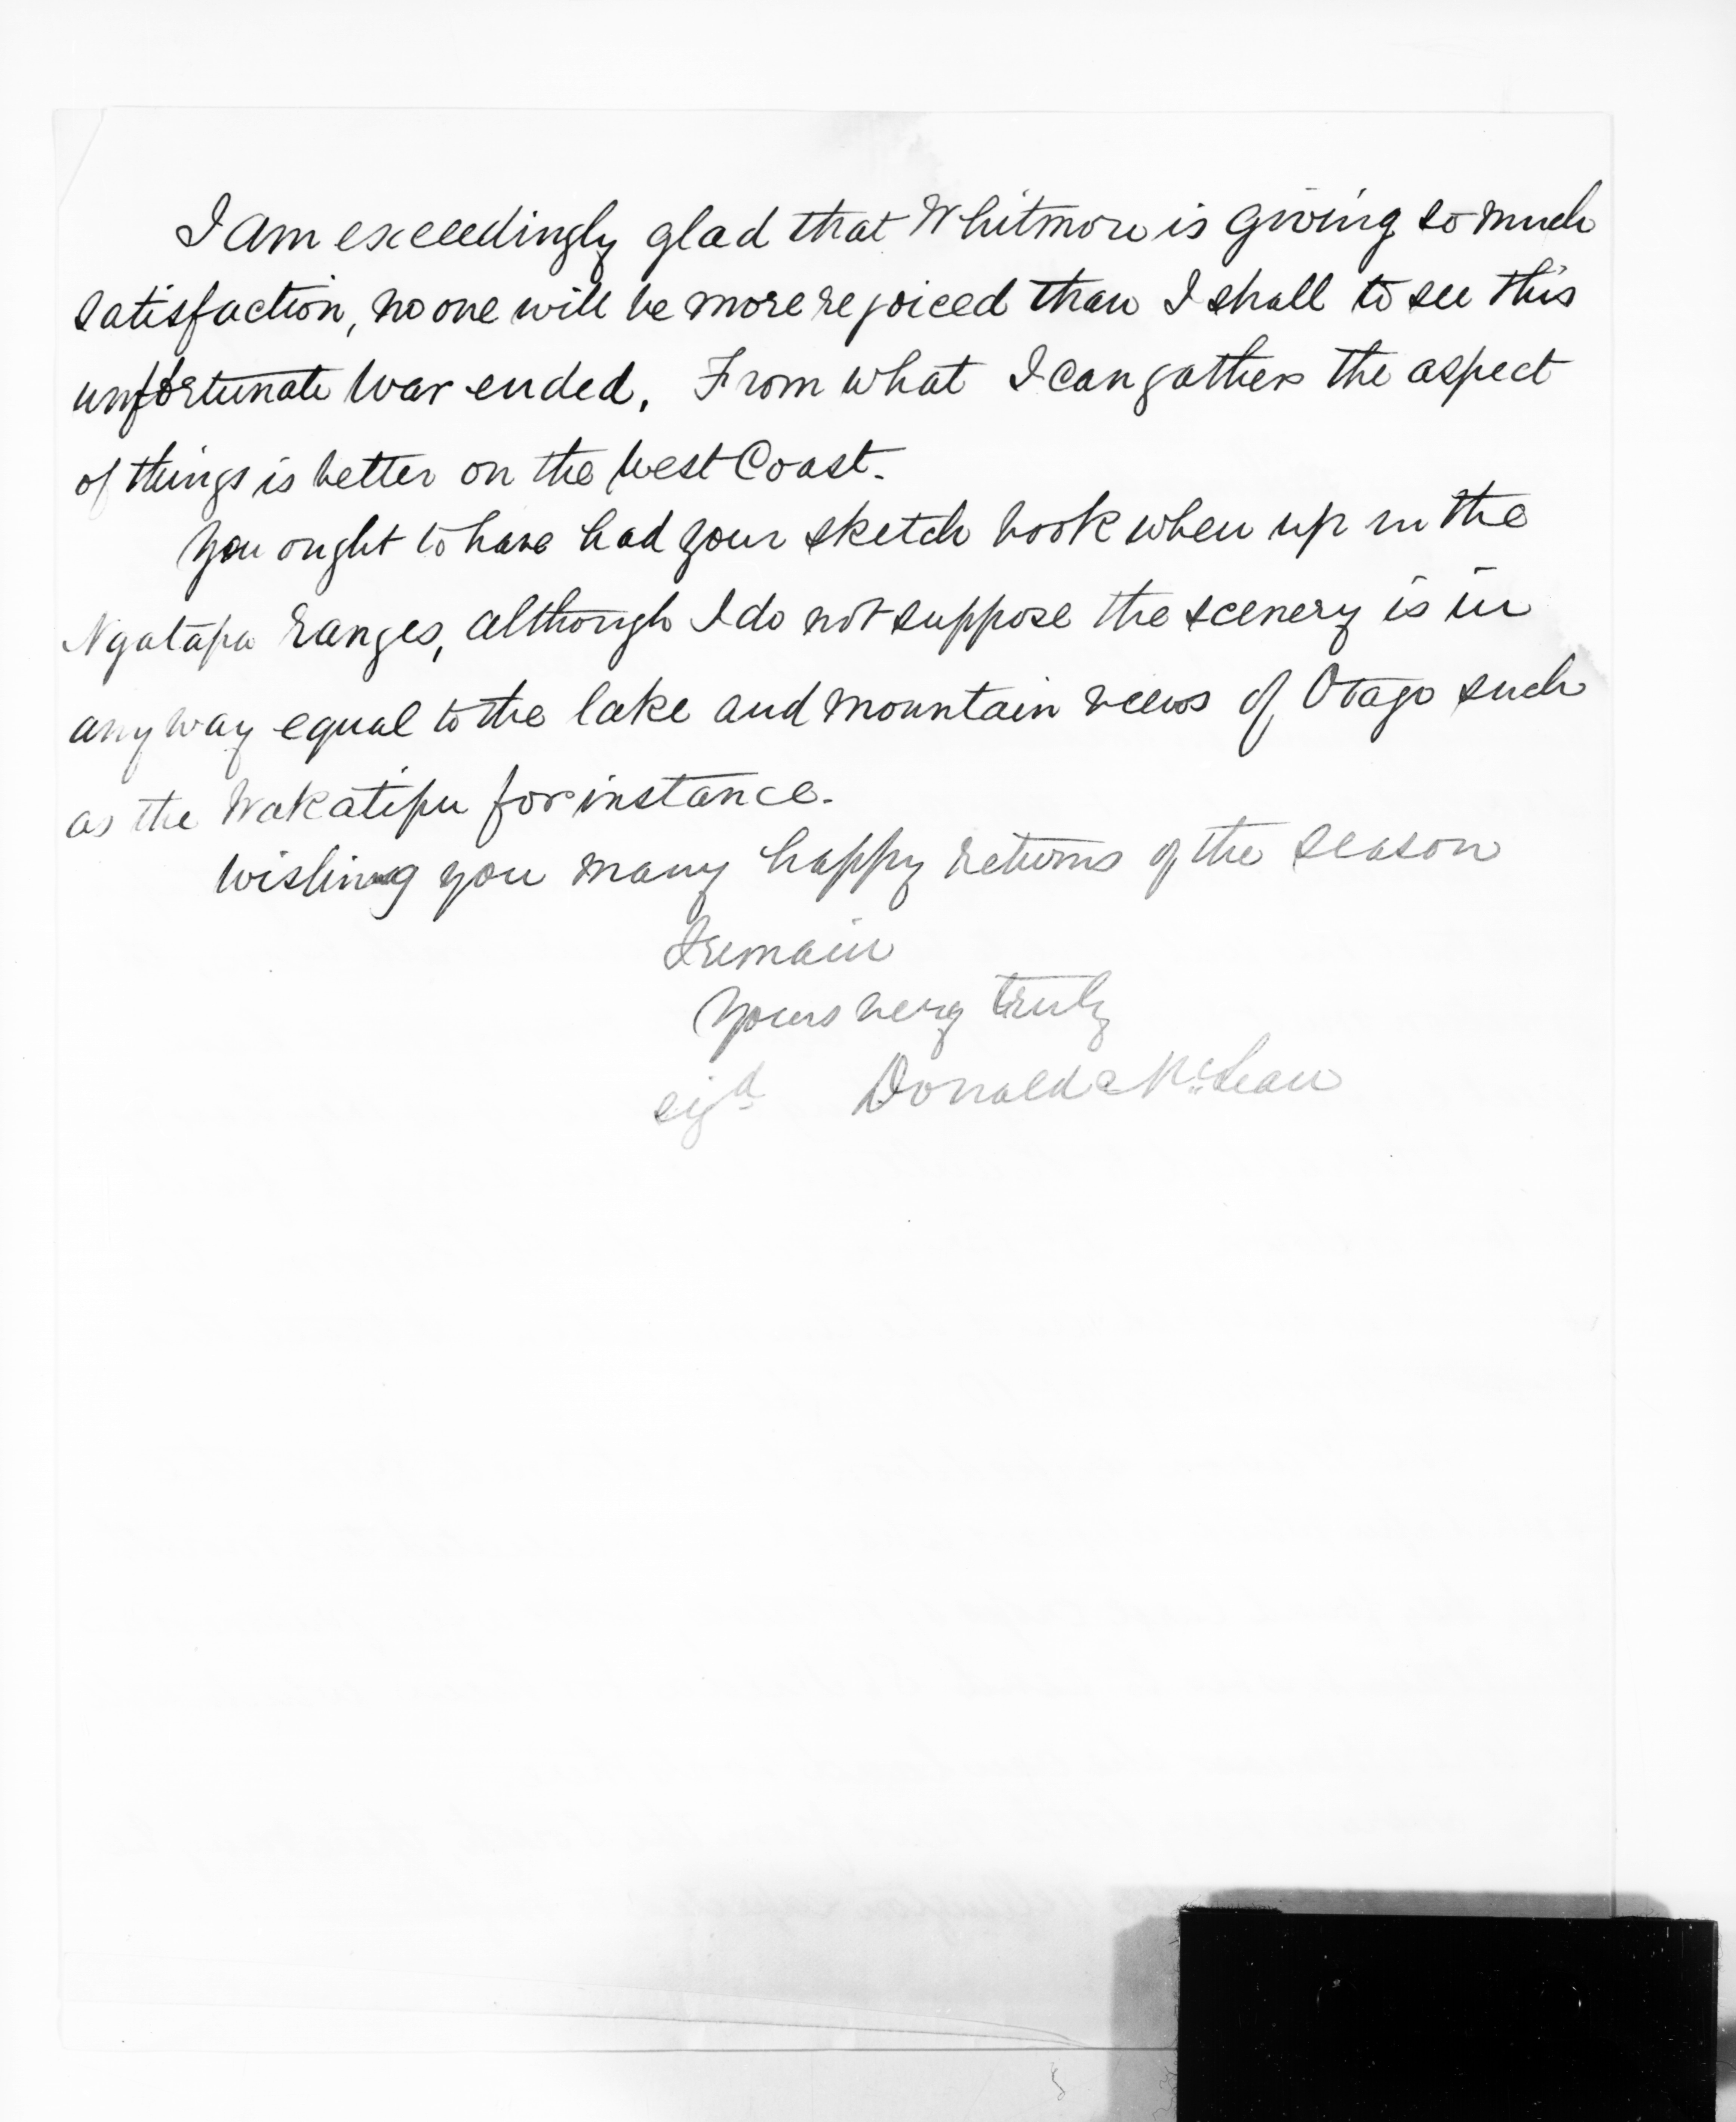 I am exceedingly glad that Whitmore is giving so much
satisfaction, no one will be more rejoiced than I shall to see this
unfortunate war ended. From what I can gather the aspect
of things is better on the West Coast.
You ought to have had your sketch book when up in the
Ngatapa ranges, although I do not suppose the scenery is in
any way equal to the lake and mountain views of Otago such
as the Wakatipu for instance.
Wishing you many happy returns of the season
I remain
Yours very truly
sigd Donald McLean